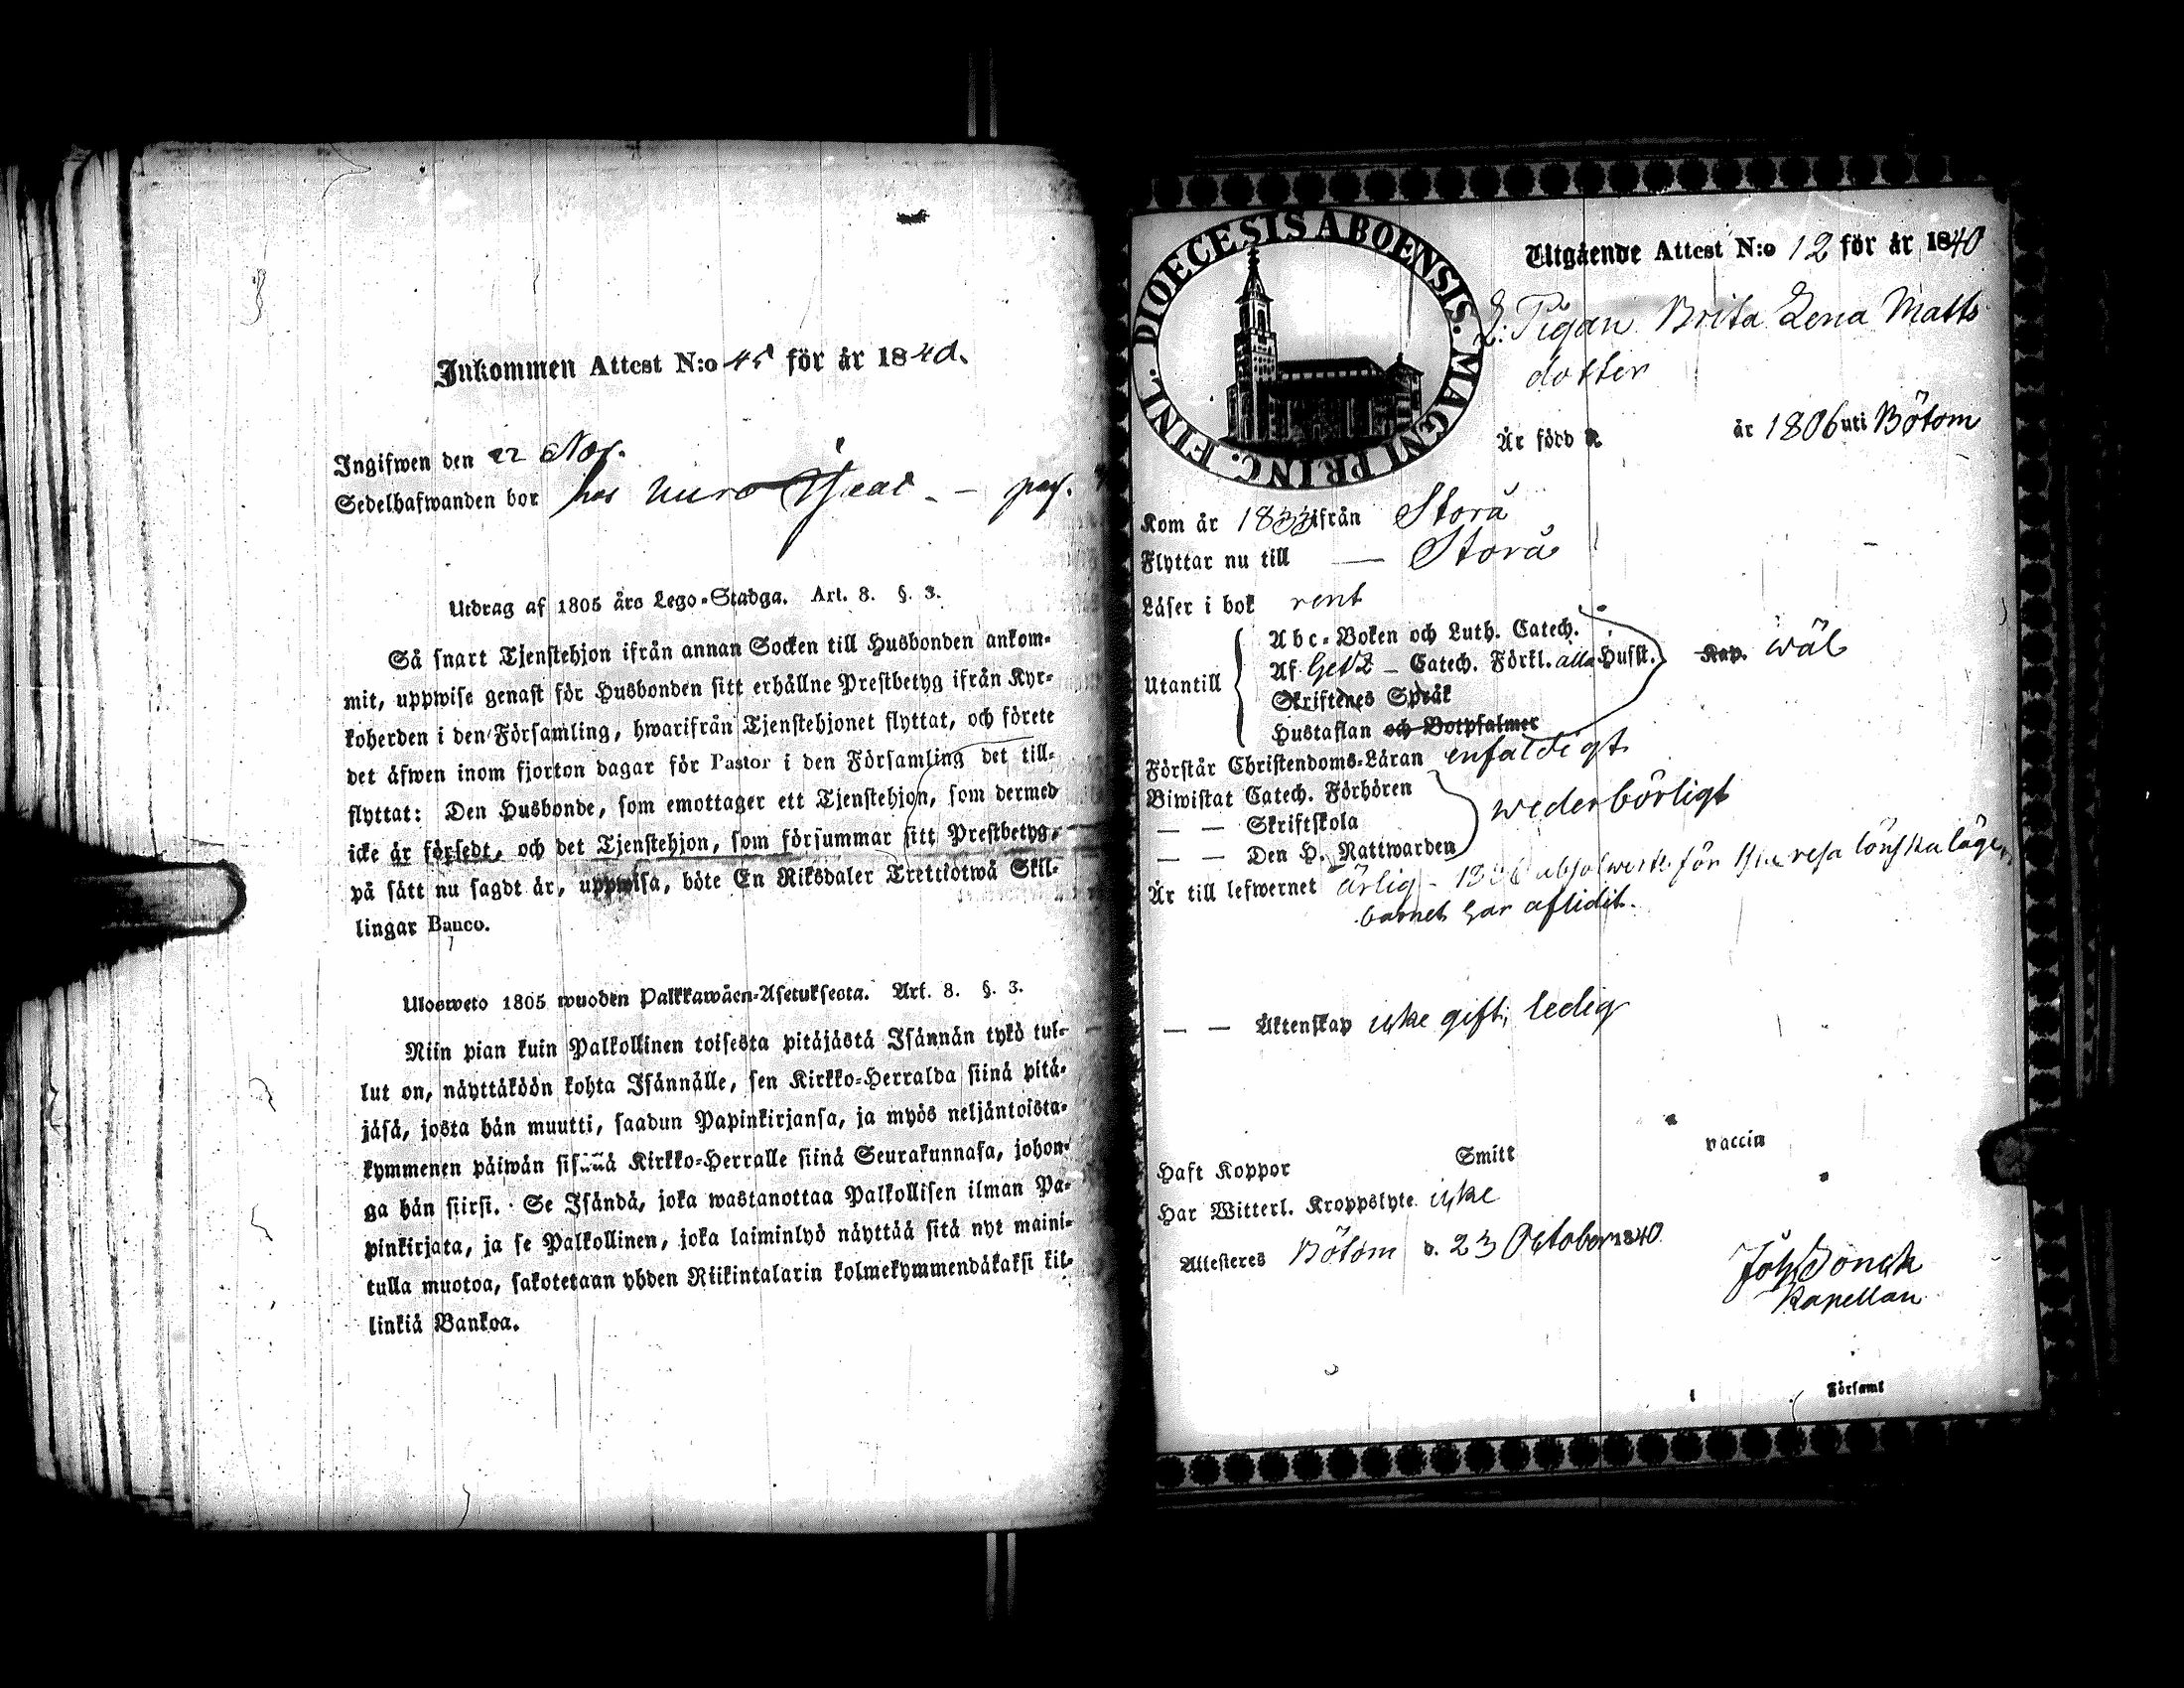 Inkommen Attest N:o 45 för år 1840.
Ingifwen den 22 Nov.
Sedelhafwanden bor hos
Utdrag af 1805 års Lego-Stadga. Art. 8. §. 3.
Så snart Tjenstehjon ifrån annan Socken till Husbonden ankom-
mit, uppwise genast för Husbonden sitt erhållne Prestbetyg ifrån Kyr-
koherden i den Församling, hwarifrån Tjenstehjonet flyttat, och förete
det äfwen inom fjorton dagar för Pastor i den Församling det till-
flyttat: Den Husbonde, som emottager ett Tjenstehjon, som dermed
icke är försedt, och det Tjenstehjon, som försummar sitt Prestbetyg,
på sätt nu sagdt är, uppwisa, böte En Riksdaler Trettiotwå Skil-
lingar Banco.
Ulosweto 1805 wuoden Palkkawäen-Asetuksesta. Art. 8. §. 3.
Niin pian kuin Palkollinen toisesta pitäjästä Isännän tykö tul-
lut on, näyttäköön kohta Isännälle, sen Kirkko-Herralda siinä pitä-
jäsä, josta hän muutti, saadun Papinkirjansa, ja myös neljäntoista-
kymmenen päiwän sisällä Kirkko-Herralle siinä Seurakunnasa, johon-
ga hän siirsi. Se Isändä, joka wastanottaa Palkollisen ilman Pa-
pinkirjata, ja se Palkollinen, joka laiminlyö näyttää sitä nyt maini-
tulla muotoa, sakotetaan yhden Riikintalarin kolmekymmendäkaksi kil-
linkiä Bankoa.
DIOECESIS ABOENSIS. MAGNI PRINC. FINL.
Utgående Attest N:o 12 för år 1840
Pigan Brita Lena Matts
dotter
Är född år 1806 uti Bötom
Kom år 1833 ifrån Storå
Flyttar nu till — Storå
Läser i bok rent
Utantill
Abc-Boken och Luth. Catech.
Af – Catech. Förkl. alla Husst. Kap. wäl
Skriftenes Språk
Hustaflan och Botpsalmer
Förstår Christendoms-Läran enfaldigt
Biwistat Catech. Förhören
— — Skriftskola wederbörligt
— — Den H. Nattwarden
Är till lefwernet ärlig - 1836 för resa lönskaläge,
barnet har aflidit.
— — Äktenskap icke gift, ledig
Haft Koppor Smitt vaccin
Har Witterl. Kroppslyte icke
Attesteres Bötom d. 23 October 1840
Kapellan
Församl